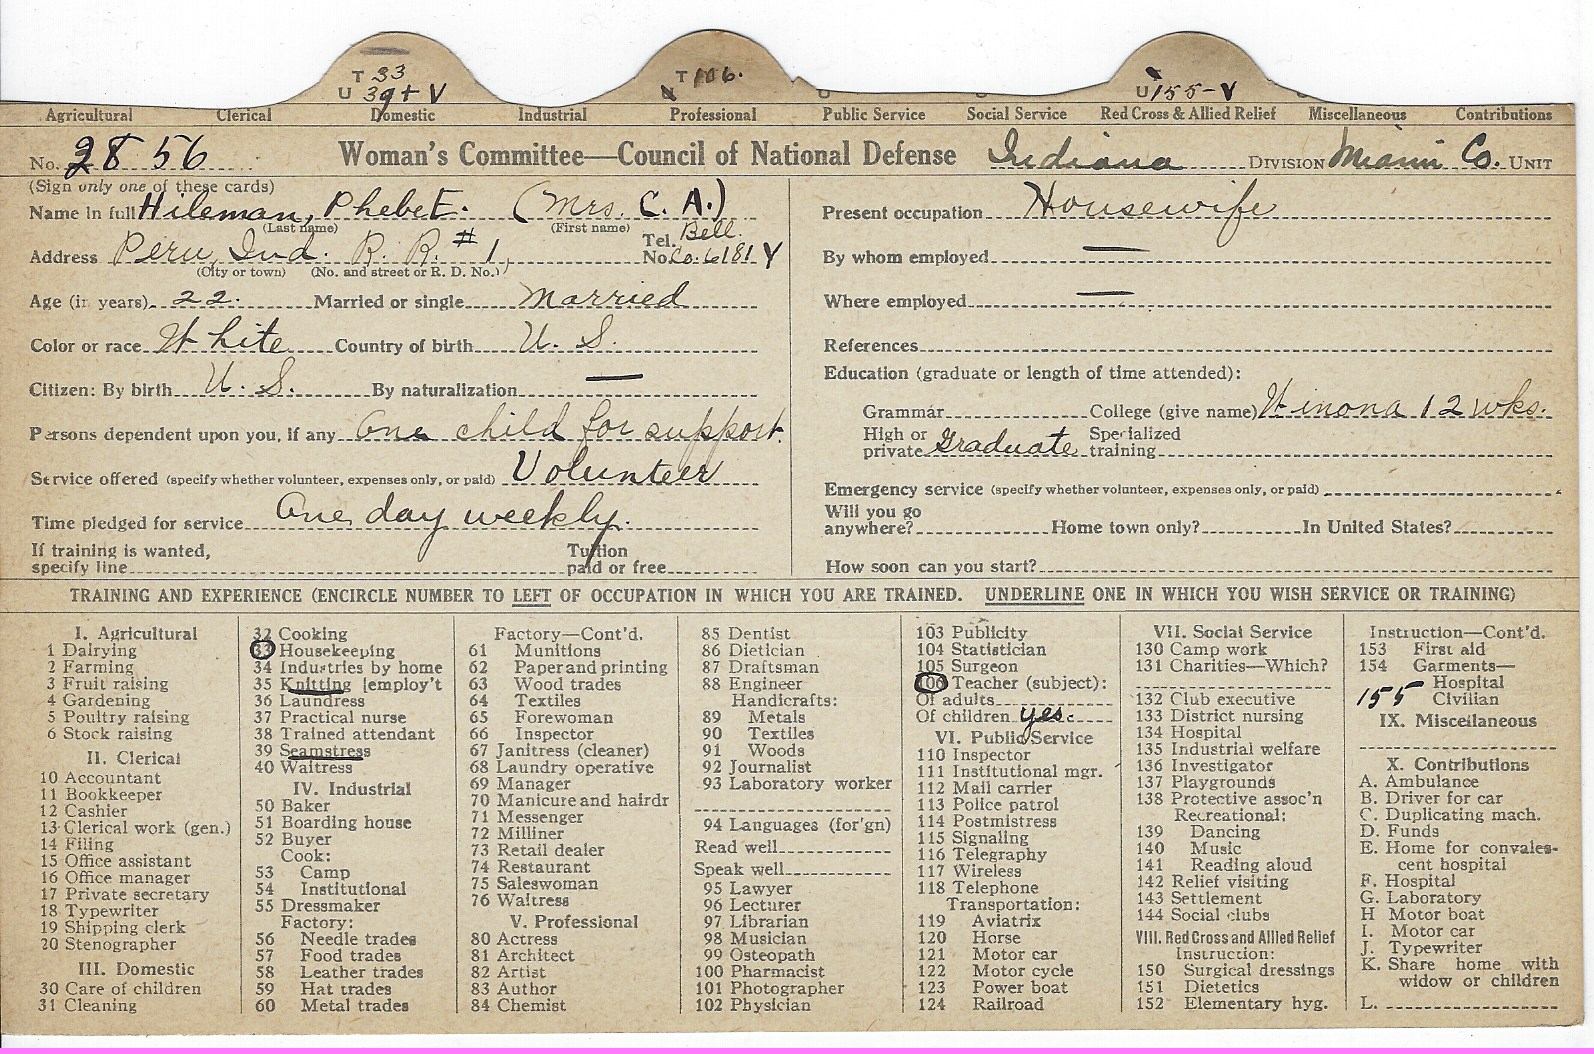 T 33
U 39 + V
T 106.
U 155 - V
Agricultural Clerical Domestic Industrial Professional Public Service Social Service Red Cross & Allied Relief Miscellaneous Contributions
No. 2856 Woman's Committee—Council of National Defense Indiana DIVISION Miami Co. UNIT
(Sign only one of these cards)
Name in full Hileman, Phebe E. (Mrs. C. A.)
(Last name) (First name)
Address Peru, Ind. R. R. #1, Tel. No. Bell. Co. 6181 Y
(City or town) (No. and street or R. D. No.)
Age (in years) 22. Married or single married
Color or race White Country of birth U. S.
Citizen: By birth U. S. By naturalization —
Persons dependent upon you, if any One child for support.
Service offered (specify whether volunteer, expenses only, or paid) Volunteer
Time pledged for service One day weekly.
If training is wanted, specify line Tuition paid or free
Present occupation Housewife
By whom employed —
Where employed —
References
Education (graduate or length of time attended):
Grammar College (give name) Winona 12 wks.
High or private Graduate Specialized training
Emergency service (specify whether volunteer, expenses only, or paid)
Will you go anywhere? Home town only? In United States?
How soon can you start?
TRAINING AND EXPERIENCE (ENCIRCLE NUMBER TO LEFT OF OCCUPATION IN WHICH YOU ARE TRAINED. UNDERLINE ONE IN WHICH YOU WISH SERVICE OR TRAINING)
I. Agricultural
1 Dairying
2 Farming
3 Fruit raising
4 Gardening
5 Poultry raising
6 Stock raising
II. Clerical
10 Accountant
11 Bookkeeper
12 Cashier
13 Clerical work (gen.)
14 Filing
15 Office assistant
16 Office manager
17 Private secretary
18 Typewriter
19 Shipping clerk
20 Stenographer
III. Domestic
30 Care of children
31 Cleaning
32 Cooking
33 Housekeeping
34 Industries by home
35 Knitting [employ't
36 Laundress
37 Practical nurse
38 Trained attendant
39 Seamstress
40 Waitress
IV. Industrial
50 Baker
51 Boarding house
52 Buyer
Cook:
53 Camp
54 Institutional
55 Dressmaker
Factory:
56 Needle trades
57 Food trades
58 Leather trades
59 Hat trades
60 Metal trades
Factory—Cont'd.
61 Munitions
62 Paper and printing
63 Wood trades
64 Textiles
65 Forewoman
66 Inspector
67 Janitress (cleaner)
68 Laundry operative
69 Manager
70 Manicure and hairdr
71 Messenger
72 Milliner
73 Retail dealer
74 Restaurant
75 Saleswoman
76 Waitress
V. Professional
80 Actress
81 Architect
82 Artist
83 Author
84 Chemist
85 Dentist
86 Dietician
87 Draftsman
88 Engineer
Handicrafts:
89 Metals
90 Textiles
91 Woods
92 Journalist
93 Laboratory worker
94 Languages (for'gn)
Read well
Speak well
95 Lawyer
96 Lecturer
97 Librarian
98 Musician
99 Osteopath
100 Pharmacist
101 Photographer
102 Physician
103 Publicity
104 Statistician
105 Surgeon
106 Teacher (subject):
Of adults
Of children yes.
VI. Public Service
110 Inspector
111 Institutional mgr.
112 Mail carrier
113 Police patrol
114 Postmistress
115 Signaling
116 Telegraphy
117 Wireless
118 Telephone
Transportation:
119 Aviatrix
120 Horse
121 Motor car
122 Motor cycle
123 Power boat
124 Railroad
VII. Social Service
130 Camp work
131 Charities—Which?
132 Club executive
133 District nursing
134 Hospital
135 Industrial welfare
136 Investigator
137 Playgrounds
138 Protective assoc'n
Recreational:
139 Dancing
140 Music
141 Reading aloud
142 Relief visiting
143 Settlement
144 Social clubs
VIII. Red Cross and Allied Relief
Instruction:
150 Surgical dressings
151 Dietetics
152 Elementary hyg.
Instruction—Cont'd.
153 First aid
154 Garments—
Hospital
155 Civilian
IX. Miscellaneous
X. Contributions
A. Ambulance
B. Driver for car
C. Duplicating mach.
D. Funds
E. Home for convales-
cent hospital
F. Hospital
G. Laboratory
H Motor boat
I. Motor car
J. Typewriter
K. Share home with
widow or children
L.